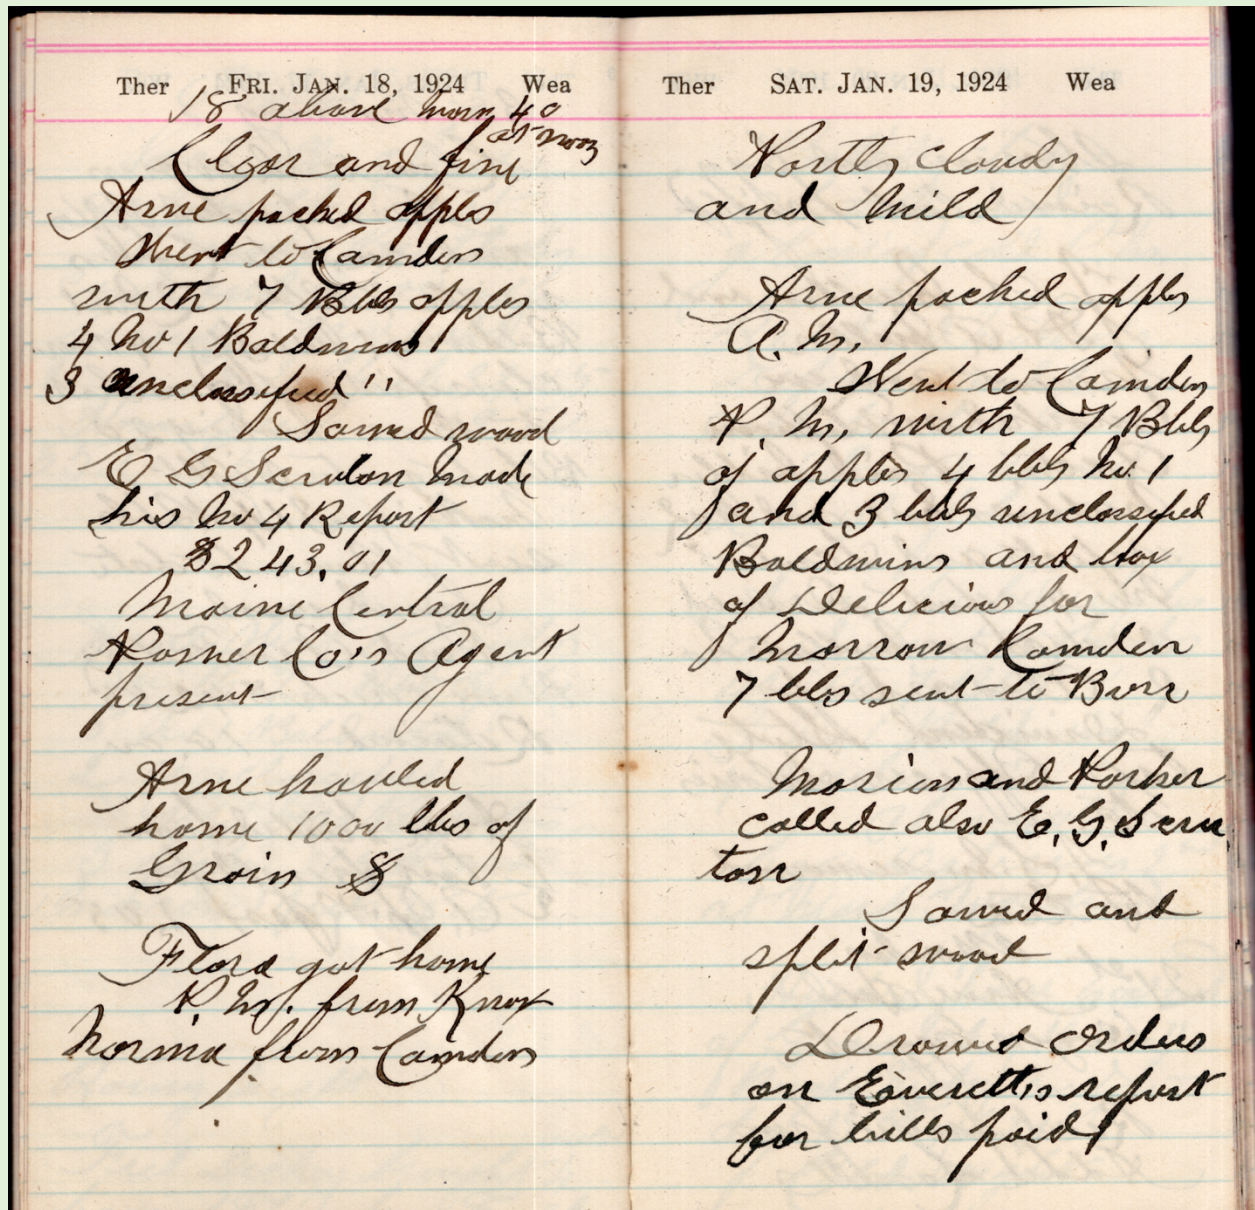 Ther FRI. JAN. 18, 1924 Wea
18 above morn 40
at noon
Clear and fine
Arne packed apples
Went to Camden
with 7 Bbls apples
4 No 1 Baldwins
3 unclassified "
Sawed wood
E G Scruton made
his No 4 Report
$243.01
Maine Central
Power Co's Agent
present
Arne hauled
home 1000 lbs of
Grain $
Flora got home
P.M. from Knox
Norma from Camden
Ther SAT. JAN. 19, 1924 Wea
Partly cloudy
and Mild
Arne packed apples
A.M.
Went to Camden
P.M. with 7 Bbls
of apples 4 bbls No. 1
and 3 bbls unclassified
Baldwins and box
of Delicious for
Morrow Camden
7 bbls sent to Burr
Marion and Parker
called also E. G. Scru
ton
Sawed and
split wood
Drawed Orders
on Everett's report
for bills paid